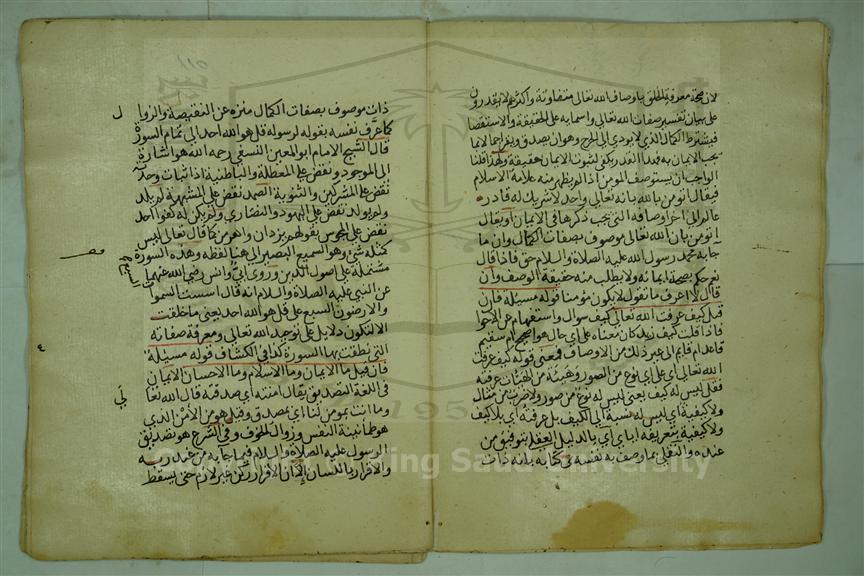 لان صحة معرفة الخلق باوصاف الله تعالى متفاوتة واكثرهم لا يقدرون
على بيان تفسير صفات الله تعالى واسمايه على الحقيقة والاستقصا
فيشترط الكمال الذي لا يودي الى الحرج وهو ان يصدق ويقر اجمالا بما
يجب الايمان به فهذا القدر يكفي لثبوت الايمان حقيقة ولهذا قلنا
الواجب ان يستوصف المومن اذا لم يظهر منه علامة الاسلام
فيقال اتومن بالله بانه تعالى واحد لا شريك له قادر
عالم الى اخر اوصافه التي يجب ذكرها في الايمان او يقال
اتومن بان الله تعالى موصوف بصفات الكمال وان ما
جا به محمد رسول الله عليه الصلاة والسلام حق فاذا قال
نعم حكم بصحة ايمانه ولا يطلب منه حقيقة الوصف وان
قال لا اعرف ما تقول لا يكون مؤمنا قوله مسيلة فان
قيل كيف عرفت الله تعالى كيف سوال واستفهام عن الاحوا
فاذا قلت كيف زيد كان معناه على اي حال هو اصحيح ام سقيم
قاعد ام قايم الى غير ذلك من الاوصاف فمعنى قوله كيف عرفت
الله تعالى اي على اي نوع من الصور وهيئة من الهيئات عرفته
فقل ليس له كيف يعني ليس له نوع من صور ولا ضرب من مثال
ولا كيفية اي ليس له نسبة الى الكيف بل عرفته اي بلا كيف
ولا كيفية بتعريفه ايانا اي بالدليل العقلي بتوفيق من
عنده والنقلي بما وصف به نفسه في كتابه بانه ذات
ذات موصوف بصفات الكمال منزه عن النقيصة والزوا
ل
كما عرف نفسه بقوله لرسوله قل هو الله احد الى تمام السورة
قال الشيخ الامام ابو المعين النسفي رحمه الله هو اشارة
الى الموجود ونقض على المعطلة والباطنية اذ اثبات وحدته
نقض على المشركين والثنوية الصمد نقض على المشبهة لم يلد
ولم يولد نقض على اليهود والنصارى ولم يكن له كفوا احد
نقض على المجوس بقولهم يزدان واهرمن كما قال تعالى ليس
كمثله شئ وهو السميع البصير الى هنا لفظه وهذه السورة
مشتملة على اصول الدين وروى ابي وانس رضي الله عنهما
عن النبي عليه الصلاة والسلام انه قال اسست السموات
السبع
والارضون السبع على قل هو الله احد يعني ما خلقت
الا لتكون دلايل على توحيد الله تعالى ومعرفة صفاته
التي نطقت بها السورة كذا في الكشاف قوله مسيلة
فان قيل ما الايمان وما الاسلام وما الاحسان الايمان
في اللغة التصديق يقال امنته اي صدقته قال الله تعا
لى
وما انت بمومن لنا اي بمصدق وقيل هو من الامن الذي
هو طمانينة النفس وزوال الخوف وفي الشرع هو تصديق
الرسول عليه الصلاة والسلام فيما جا به من عند ربه
والاقرار باللسان الا ان الاقرار ركن غير لازم حتى يسقط
King Saud University
195